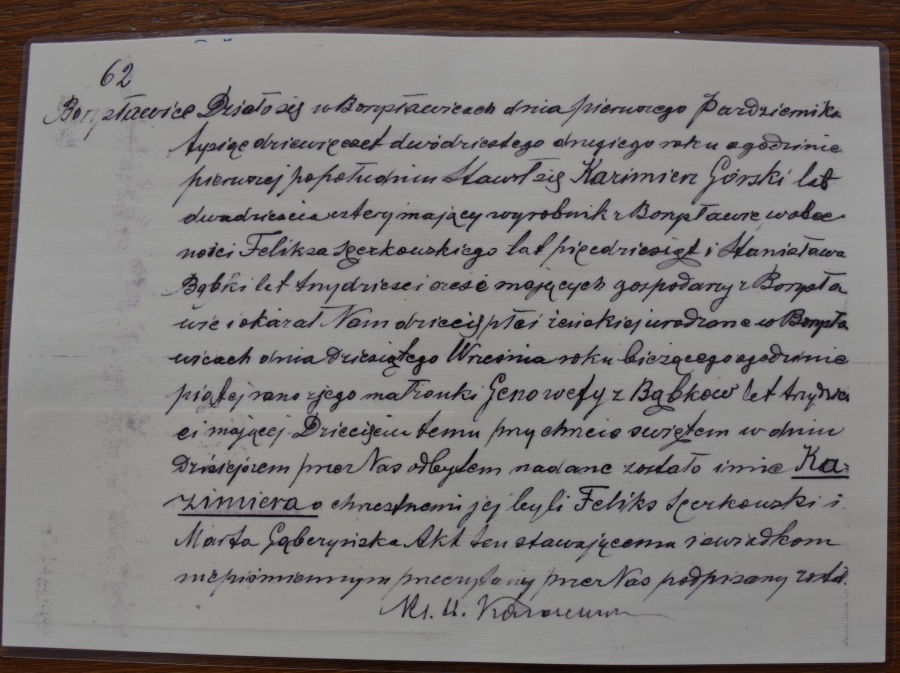 62
Borysławice Działo się w Borysławicach dnia pierwszego Października
tysiąc dziewięćset dwódziestego drugiego roku o godzinie
pierwszej popołudniu Stawił się Kazimierz Górski lat
dwadzieścia cztery mający wyrobnik z Borysławic w obec
ności Feliksa Szerkowskiego lat pięcdziesiąt i Stanisława
Bąbki lat trzydzieści sześć mających gospodarzy z Borysła
wic i okazał Nam dziecię płci żeńskiej urodzone w Borysła
wicach dnia dziesiątego Września roku bieżącego o godzinie
piątej rano z jego małżonki Genowefy z Bąbków lat trzydzie
ci mającej. Dziecięciu temu przy chrzcie świętem w dniu
dzisiejszem przez Nas odbytem nadane zostało imię Ka-
zimiera a chrzestnemi jej byli Feliks Szerkowski i
Marta Gąberyńska Akt ten stawającemu i świadkom
niepiśmiennym przeczytany przez Nas podpisany został.